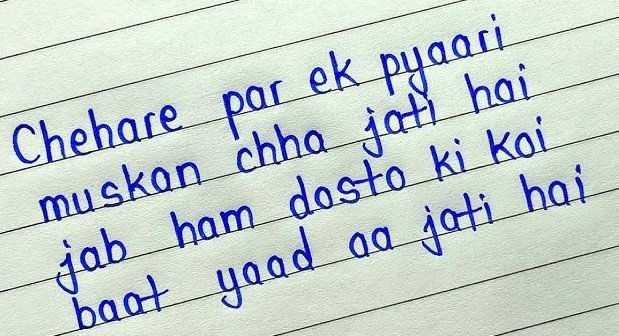 Chehare par ek pyaari
muskan chha jati hai
jab ham dosto ki koi
baat yaad aa jati hai